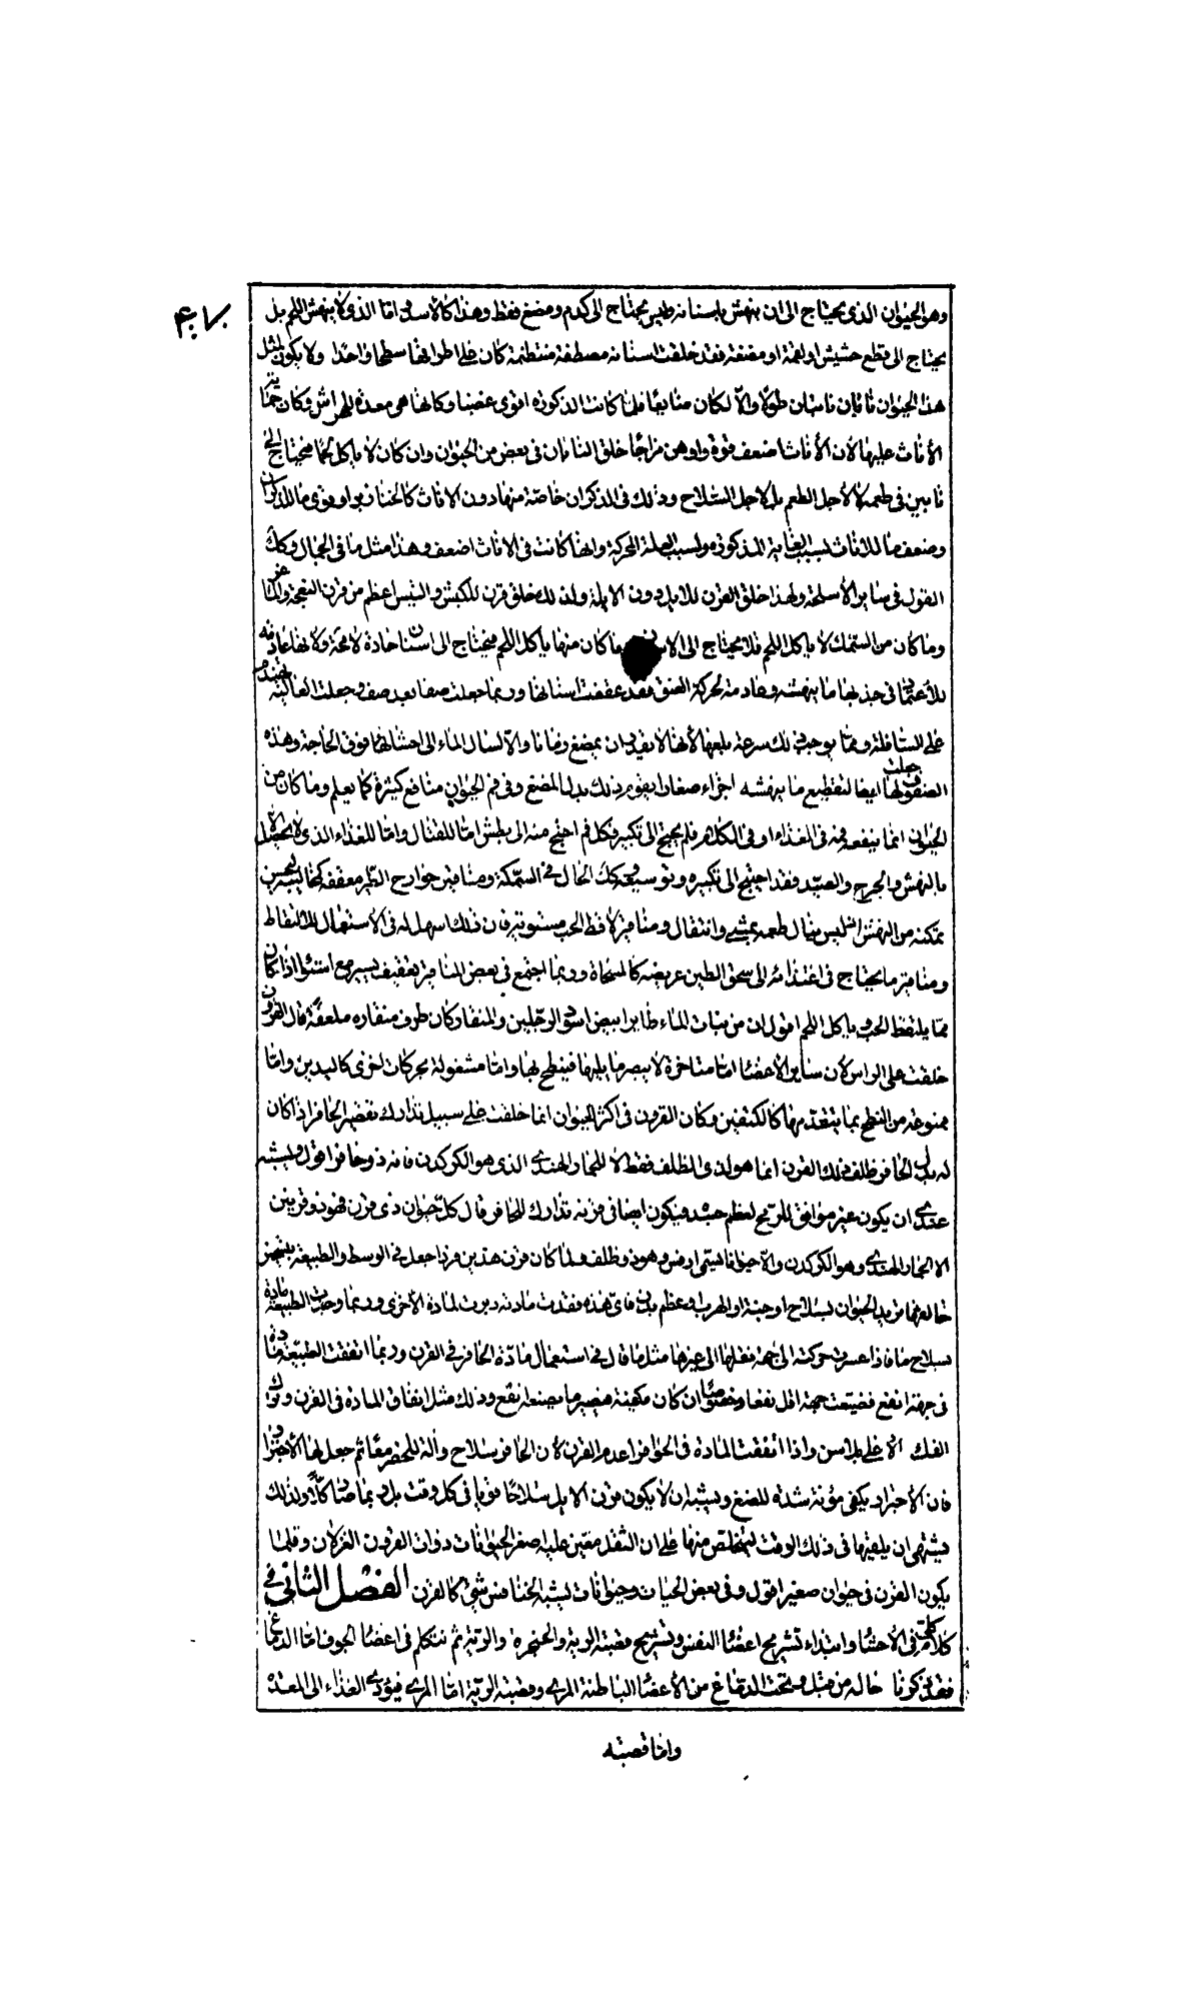 ۴۰۷
وهو الحيوان الذى يحتاج الى ان ينهش باسنانه ليس يحتاج الى كدم ومضغ فقط وهذا كالاسد واما الذى لا ينهش اللحم بل
يحتاج الى قطع حشيش او لقمة او مضغة فقد خلقت اسنانه مصطفة منتظمة كان على اطرافها سطحا واحدا ولا يكون لمثل
هذا الحيوان نابان ناتيان طولا والا لكان مانعا فلما كانت الذكورة اقوى غضبا وكانها هى معدة للهراش وكان
الأناث عليها لان الأناث اضعف قوة واوهن مزاجا خلق النابان فى بعض من الحيوان وان كان لا ياكل لحما فيحتاج الى
نابين فى طعمه لا لأجل الطعم بل لاجل السلاح وذلك فى الذكران خاصة منها دون الاناث كالخنازير او يقوى ما للذكران
وضعف ما للاناث لسبب الغاية المذكورة ولسبب العلة المحركة وانها كانت فى الاناث اضعف وهذا مثل ما فى الجمال وكذلك
القول فى ساير الأسلحة ولهذا خلق القرن للايل دون الايلة ولذلك خلق قرن للكبش والتيس اعظم من قرن النعجة والعنز
وما كان من السمك لا ياكل اللحم فلا يحتاج الى وما كان منها ياكل اللحم فيحتاج الى اسنان حادة لامحة ولانها عادمة
للاعتماد فى جذبها ما ينهشه وعادمة لحركة العنق فقد عقفت اسنانها وربما جعلت صفا بعد صف وجعلت العالية
على السافلة ومما يوجب ذلك سرعة بلعها لأنها لا يقدر ان يمضغ زمانا والا لسال الماء الى احشائها فوق الحاجة وهذه
الصفوف جعلت لها ايضا لتقطيع ما ينهشه اجزاء صغارا يقوم ذلك بدل المضغ وفى فم الحيوان منافع كثيرة كما يعلم وما كان من
الحيوان انما ينفعه فمه فى الغذاء او فى الكلام فلم يحتج الى تكبير وكل فم احتج منه الى بطش اما للقتال واما للغذاء الذى لا يحصل الا
بالنهش والجرح والصيد فقد احتيج الى تكبيره وتوسيعه وكذلك الحال فى السمكة ومناقير جوارح الطير معقفة
تمكنه من النهش اذ ليس ينال طعمه بمشى وانتقال ومناقير لاقط الحب مستوية فان ذلك اسهل له فى الاستعمال للالتقاط
ومناقير ما يحتاج فى اغتذائه الى سحق الطين عريضة كالمسحاة وربما اجتمع فى بعض المناقير تعقيف يسير مع استواء اذا كان
مما يلتقط الحب و ياكل اللحم اقول ان من بنات الماء طايرا ابيض اسود الرجلين والمنقار وكان طرف منقاره ملعقة قال القرون
خلقت على الراس لان ساير الأعضاء اما متاخرة لا يبصر ما يليها فينطح بها واما مشغولة بحركات اخرى كاليدين واما
ممنوعة من النطح بما يتقدمها كالكتفين وكان القرون فى اكثر الحيوان انما خلقت على سبيل تدارك تقصير الحافر اذا كان
له بدل الحافر ظلف فذلك القرن انما هو لذى الظلف فقط الا للحمار الهندى الذى هو الكركدن فانه ذو حافر اقول ويشبه
عندى ان يكون غير موافق للرمح لعظم جثته ويكون ايضا فى قرنه تدارك للحافر قال كل حيوان ذى قرن فهو ذو قرنين
الا الحمار الهندى وهو الكركدن والا حيوانا يسمى ارفس وهو ذو ظلف ولما كان قرن هذين فردا جعل فى الوسط والطبيعة
خالقها تزيد الحيوان بسلاح او جنة او الهرب او عظم بدن فاى هذه فقدت مادته دبرت لمادة الأخرى وربما وجدت الطبيعة مادة
سلاح ما فاذا عسرت حركته الى جهة نقلها الى غيرها مثل ما قال فى استعمال مادة الحافر فى القرن وربما انفقت الطبيعة مادة
فى جهة انفع فضيعت جهة اقل نفعا وخصوصا ان كان مكنه تقصير ما يصنعه انفع وذلك مثل انفاق المادة فى القرن وترك
الفك الاعلى بلا سن واذا انفقت المادة فى الحوافر اعدم القرن لأن الحافر سلاح وآلة للحضر معا ثم جعل لها الأجترار
فان الأجترار يكفى مؤنة شدة المضغ ويشبه ان لا يكون قرن الايل سلاحا قويا فى كل وقت بل ربما صار كلا ولذلك
يشتهى ان يلقيها فى ذلك الوقت ليتخلص منها على ان الثقل معين عليه اصغر الحيوانات ذوات القرون الغزلان وقلما
يكون القرن فى حيوان صغير اقول وفى بعض الحيات وحيوانات يشبه الخنافس شىء كالقرن الفصل الثانى فى
كلام كلى فى الأحشاء وابتداء تشريح اعضاء النفس وتشريح قصبة الرية والحنجرة والرية ثم نتكلم فى اعضاء الجوف اما الدماغ
فقد ذكرنا حاله من قبل وتحت الدماغ من الأعضاء الباطنة المرى وقصبة الرية اما المرى فيؤدى الغذاء الى المعدة
واما قصبة